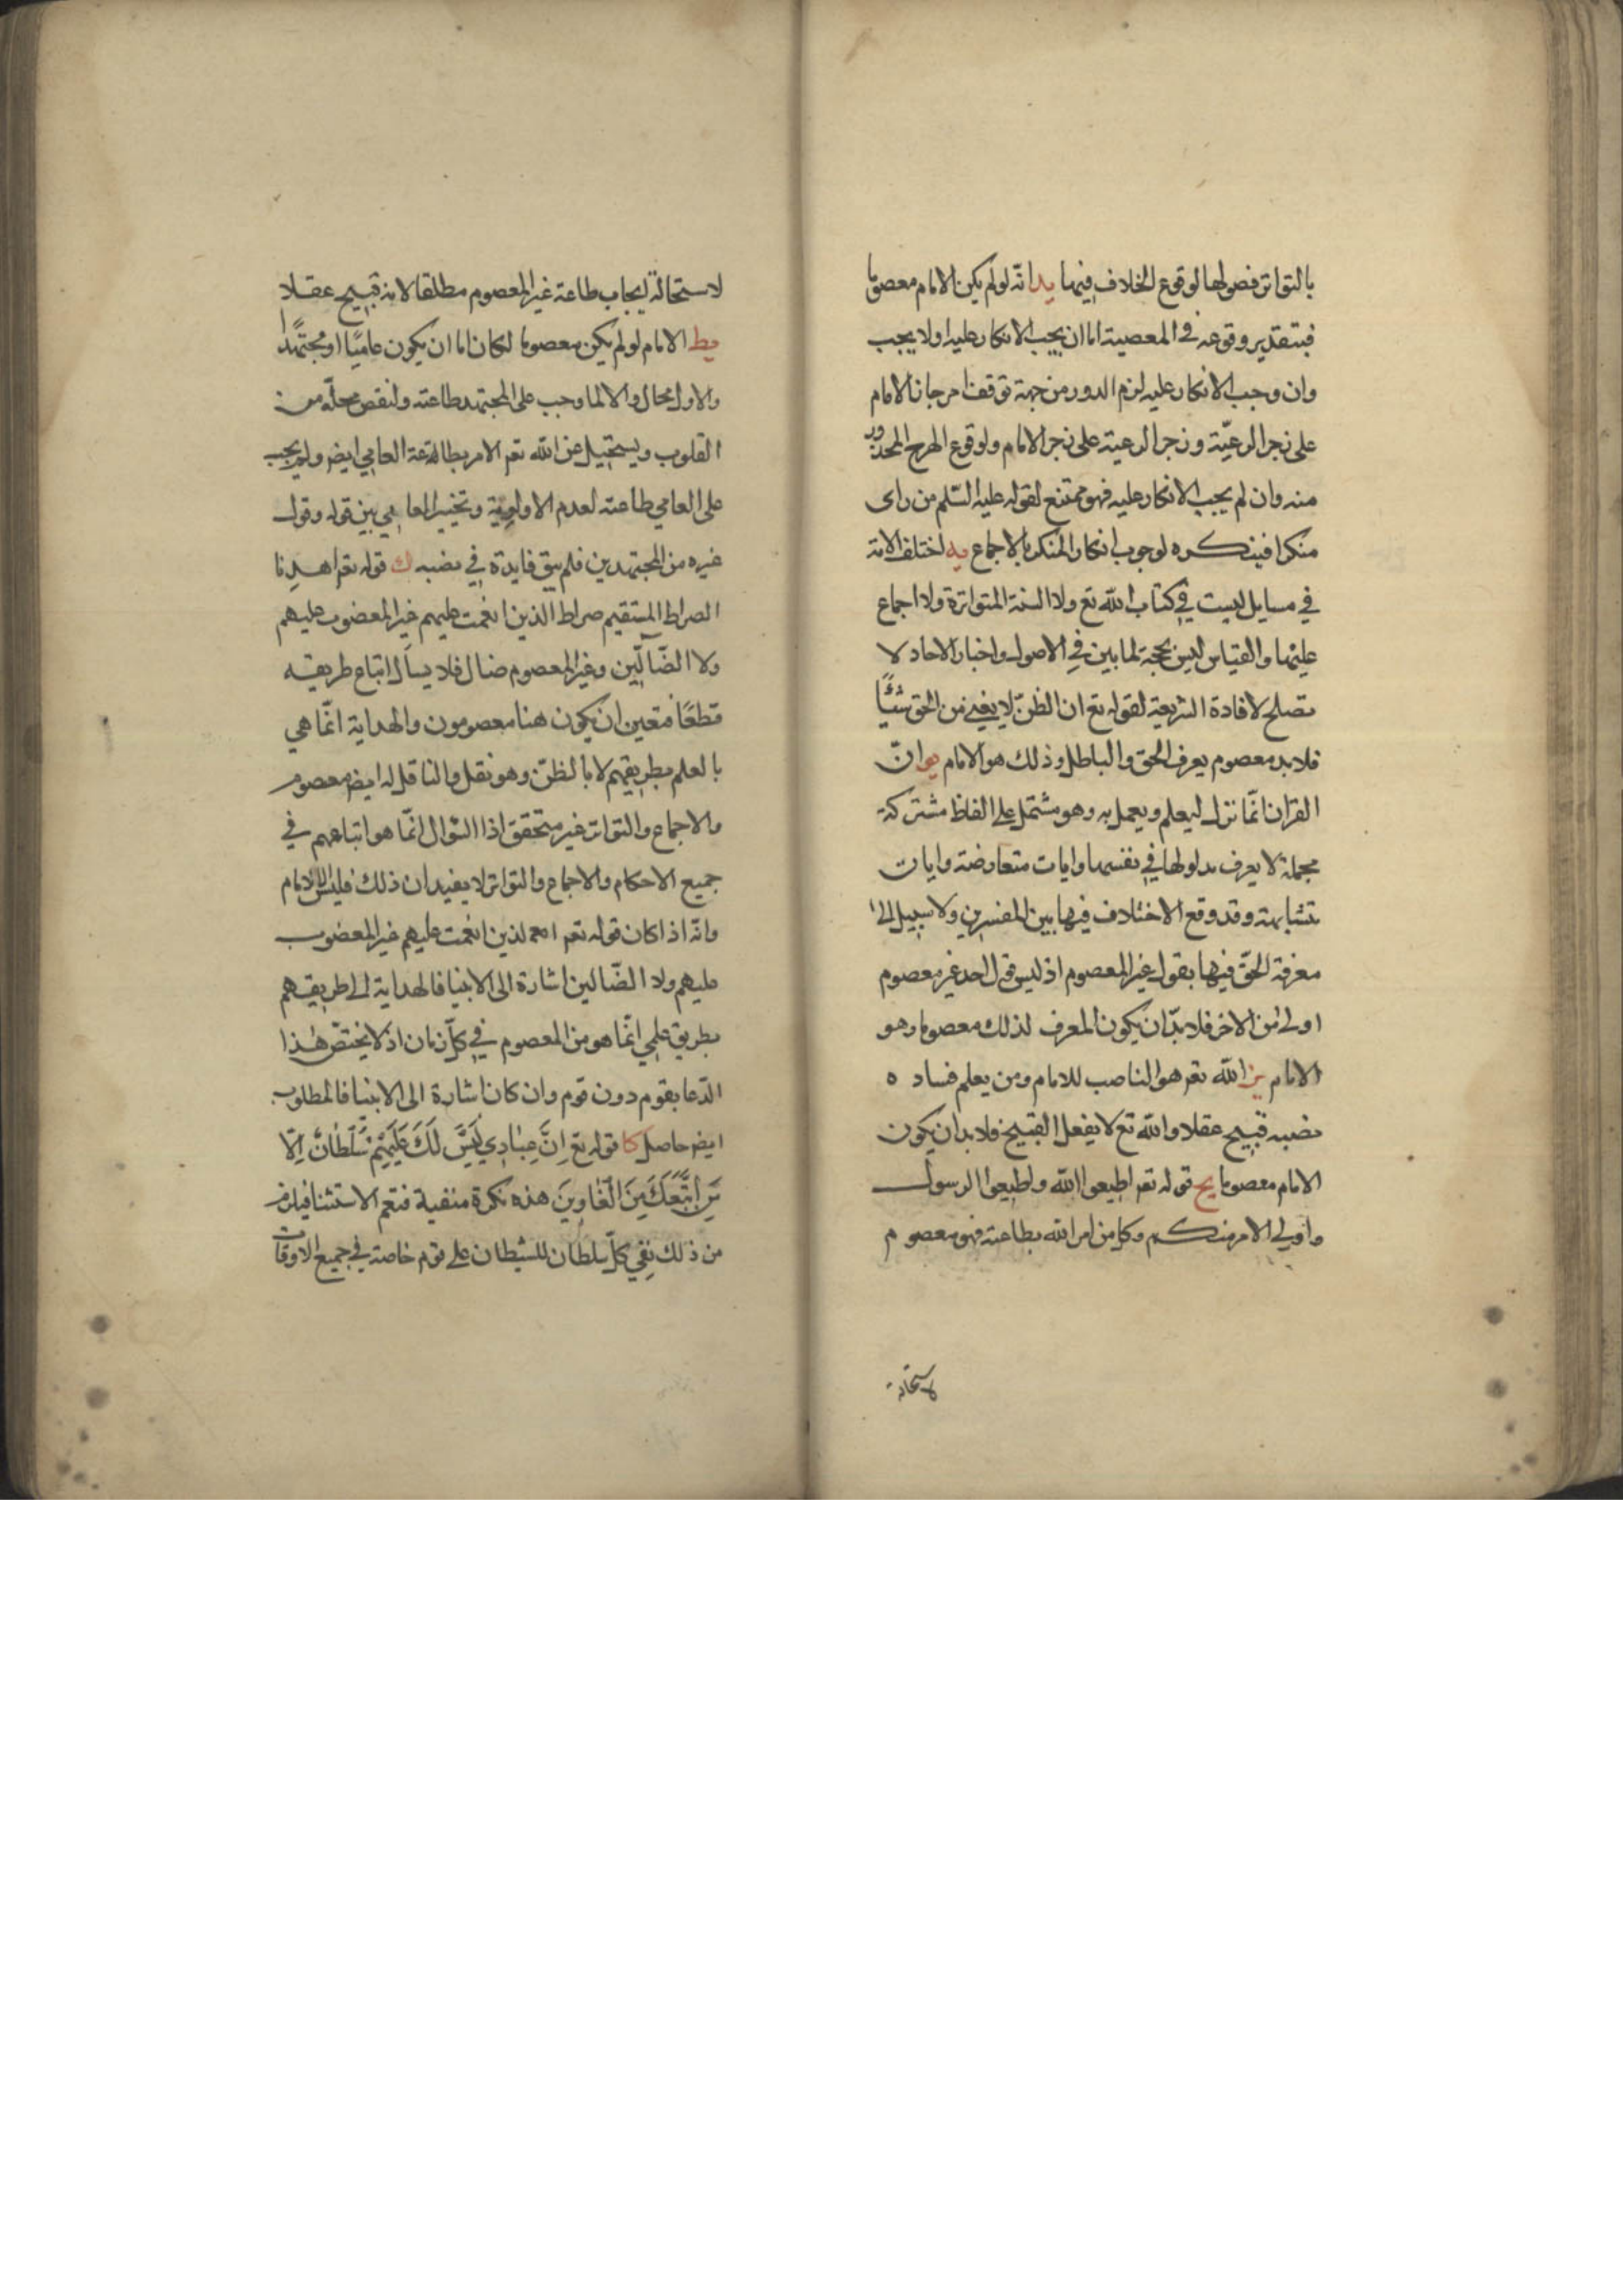 بالتواتر فصولها لوقوع الخلاف فيها يد انّه لو لم يكن الامام معصوما
فبتقدير وقوعه في المعصية اما ان يجب الانكار عليه او لا يجب
وان وجب الانكار عليه لزم الدور من جهة توقف انزجار الامام
على زجر الرعيّة وزجر الرعية على زجر الامام ولوقوع الهرج المحذور
منه وان لم يجب الانكار عليه فهو ممتنع لقوله عليه السّلم من راى
منكرا فينكره لوجوب انكار المنكر بالاجماع يه اختلف الامة
في مسايل ليست في كتاب الله تع ولا السنة المتواترة ولا اجماع
عليها والقياس ليس بحجة لما بين في الاصول واخبار الاحاد لا
تصلح لافادة الشريعة لقوله تع ان الظنّ لا يغني من الحق شيئًا
فلا بد معصوم يعرف الحق والباطل وذلك هو الامام يو انّ
القران انّما نزل ليعلم ويعمل به وهو مشتمل على الفاظ مشتركة
مجملة لا يعرف مدلولها في نفسها وايات متعارضة وايات
متشابهة وقد وقع الاختلاف فيها بين المفسرين ولا سبيل الى
معرفة الحقّ فيها بقول غير المعصوم اذ ليس قول احد غير معصوم
اولى من الاخر فلا بدّ ان يكون المعرف لذلك معصوما وهو
الامام يز الله تعم هو الناصب للامام ومن يعلم فساد ه
نصبه قبيح عقلا والله تع لا يفعل القبيح فلا بد ان يكون
الامام معصوما يح قوله تعم اطيعوا الله واطيعوا الرسول
واولي الامر منكم وكل من امر الله بطاعته فهو معصوم
لاستحالة
لاستحالة ايجاب طاعة غير المعصوم مطلقا لانه قبيح عقلا
يط الامام لو لم يكن معصوما لكان اما ان يكون عاميّا او مجتهدًا
والاول محال والا لما وجب على المجتهد طاعته ولنقص محلّه من
القلوب ويستحيل عن الله تعم الامر بطاعة العامي ايضر ولم يجب
على العامي طاعته لعدم الاولوية وتخيير العامي بين قوله وقول
غيره من المجتهدين فلم يبق فايدة في نصبه ك قوله تعم اهدنا
الصراط المستقيم صراط الذين انعمت عليهم غير المغضوب عليهم
ولا الضّآلّين وغير المعصوم ضال فلا يسأل اتباع طريقه
قطعًا فتعين ان يكون هنا معصومون والهداية انّما هي
بالعلم بطريقهم لا بالظنّ وهو نقل والناقل له ايضر معصوم
والاجماع والتواتر غير متحقق اذا السّؤال انّما هو اتباعهم في
جميع الاحكام والاجماع والتواتر لا يفيدان ذلك فليس الا الامام
وانّه اذا كان قوله تعم الذين انعمت عليهم غير المغضوب
عليهم ولا الضّالين اشارة الى الانبيا فالهداية الى طريقهم
بطريق علمي انّما هو من المعصوم في كلّ زمان اذ لا يختصّ هٰذا
الدّعا بقوم دون قوم وان كان اشارة الى الانبيا فالمطلوب
ايضر حاصل كا قوله تع اِنَّ عِبٰادِي لَيْسَ لَكَ عَلَيْهِمْ سُلْطٰانٌ اِلّا
مَنِ اتَّبَعَكَ مِنَ الْغٰاوِينَ هذه نكرة منفية فتعم الاستثنا فيلزم
من ذلك نفي كلّ سلطان للشيطان على قوم خاصة في جميع الاوقات